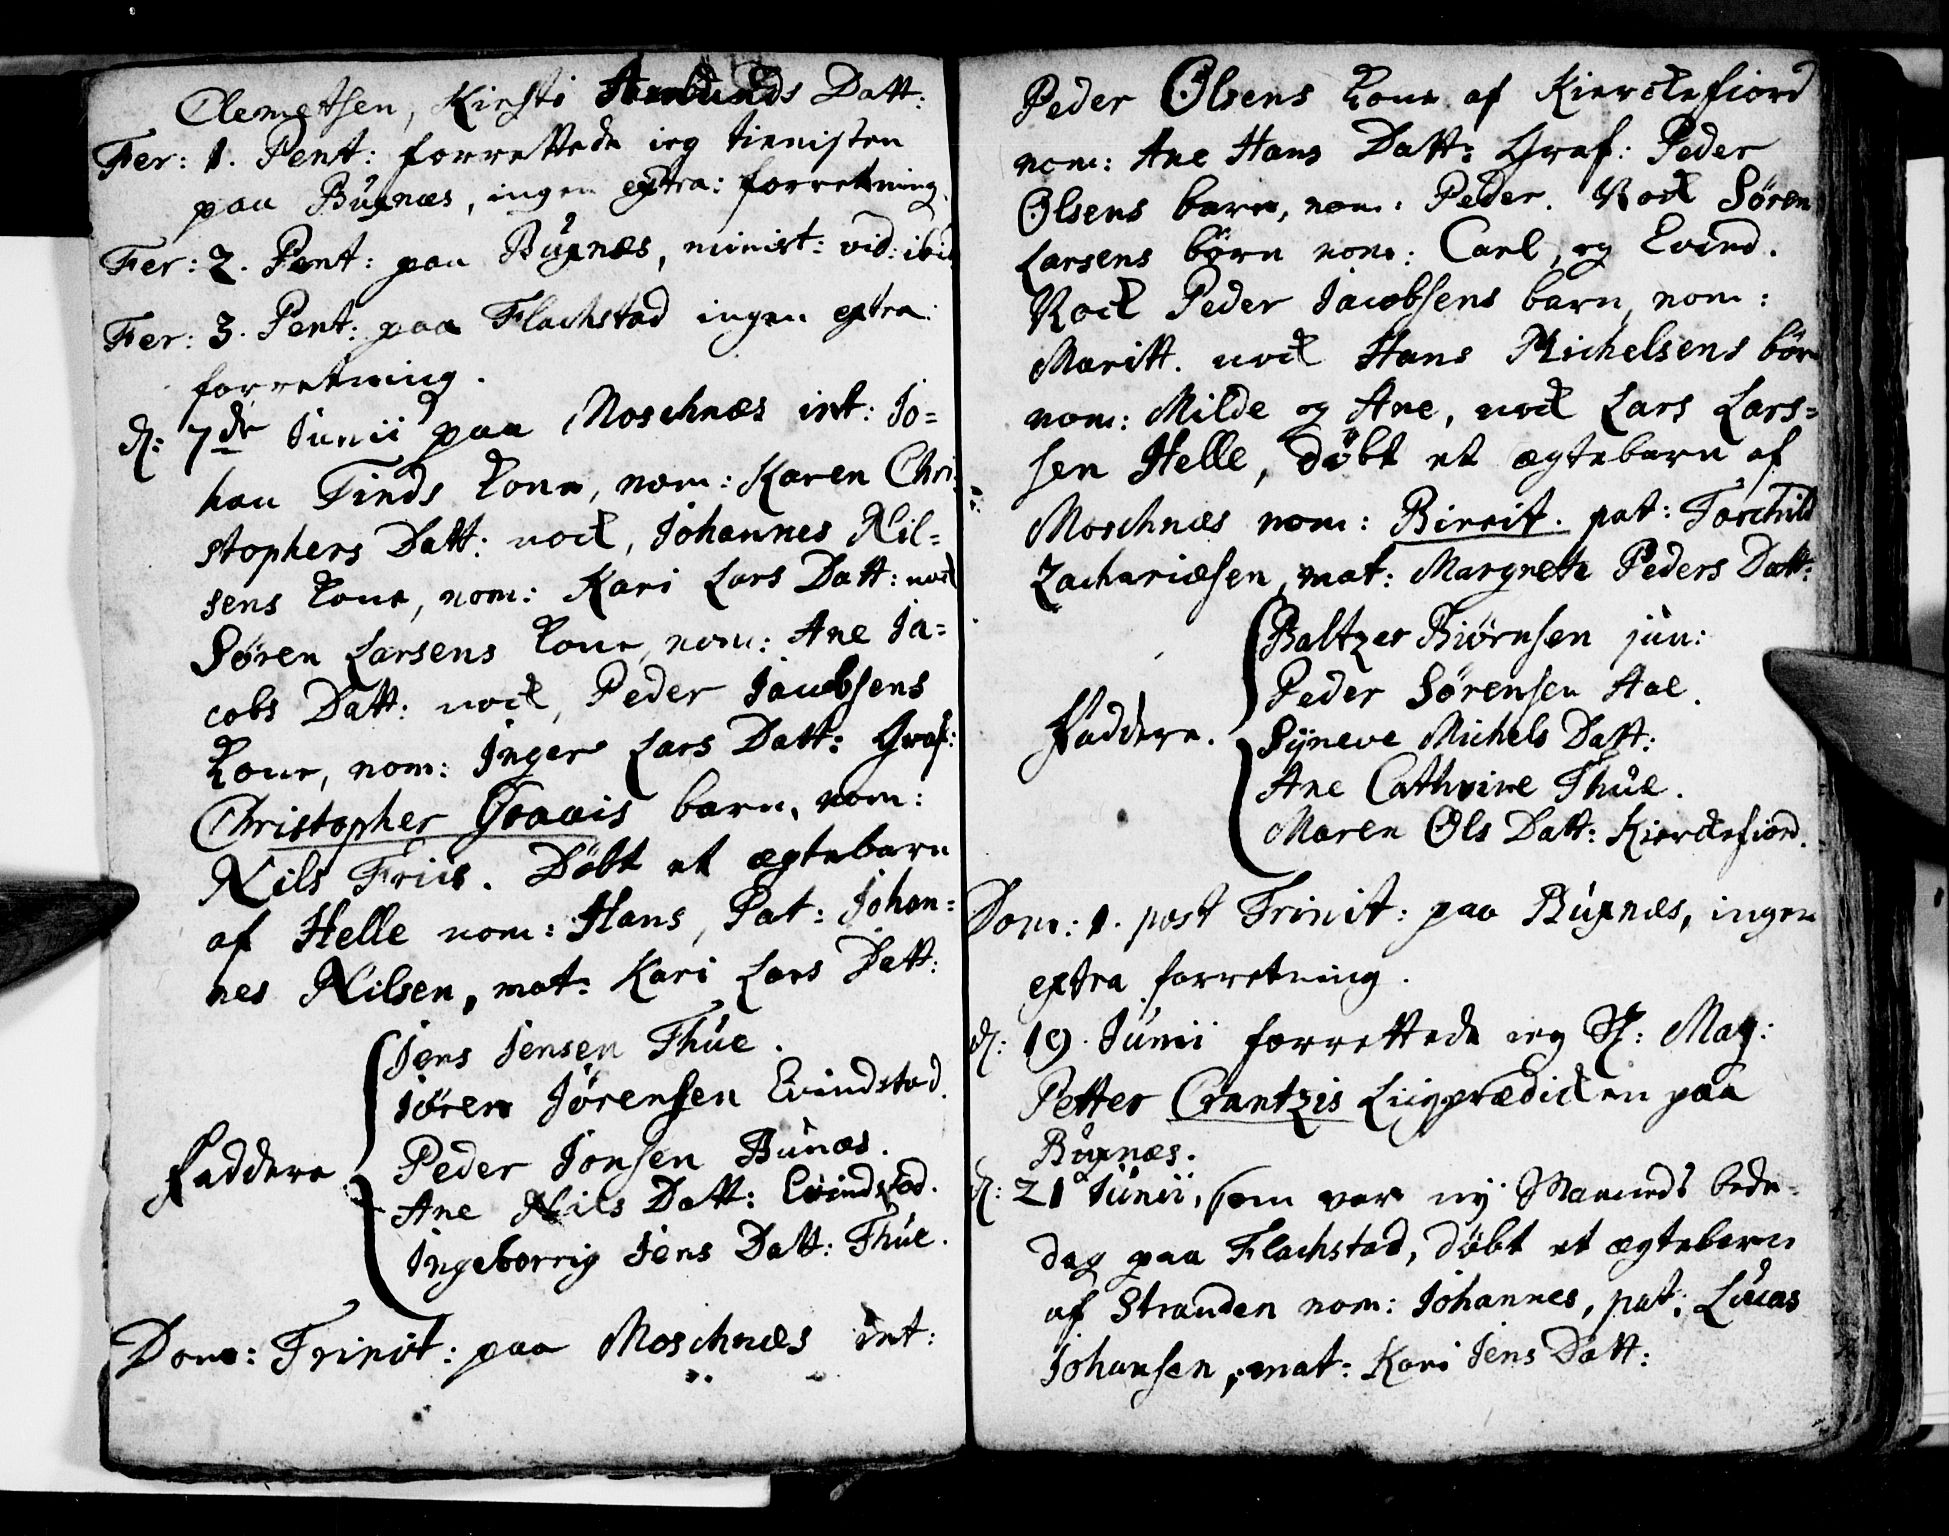 Clemetsen, Kirsti Amunds Datt:
Fer: 1. Pent: forrettede ieg tienisten
paa Buxnæs, ingen extra: forretning.
Fer: 2. Pent: paa Buxnæs, minist: vid: ibid
Fer: 3. Pent: paa Flachstad ingen extra:
forretning.
d: 7de Junii paa Moschnæs int: Jo=
han Finds kone, nom: Karen Chri
stophers Datt: nock, Johannes Nil=
sens kone, nom: Kari Lars Datt: nock
Søren Larsens kone, nom: Ane Ja=
cobs Datt: nock, Peder Jacobsens
kone, nom: Inger Lars Datt: Graf:
Christopher Graais barn, nom:
Nils Friis. Døbt et ægtebarn
af Helle nom: Hans, Pat: Johan=
nes Nilsen, mat: Kari Lars Datt:
Jens Jensen Thue.
Jören Jörensen Evindstad.
Faddere Peder Jonsen Bunæs.
Ane Nils Datt: Evindstad.
Ingeborrig Jens Datt: Thue.
Dom: Trinit: paa Moschnæs int:
Peder Olsens kone af Kierckefiord
nom: Ane Hans Datt: Graf: Peder
Olsens barn, nom: Peder. Nock Søren
Larsens børn nom: Carl, og Evind.
Nock Peder Jacobsens barn, nom:
Maritt. nock Hans Michelsens børn
nom: Milde og Ane, nock Lars Lars=
sen Helle, døbt et ægtebarn af
Moschnæs nom: Birrit. pat: Torchild
Zachariæsen, mat: Margrete Peders Datt:
Baltzer Biørnsen jun:
Peder Sørensen Aae.
Faddere. Syneve Michels Datt:
Ane Cathrine Thue.
Maren Ols Datt: Kierckefiord.
Dom: 1. post Trinit: paa Buxnæs, ingen
extra forretning.
d: 19. Junii forrettede ieg Sl: Mag:
Petter Crantzis Liigprædicken paa
Buxnæs.
d: 21 Junii, som var ny Maaneds bede=
dag paa Flachstad, døbt et ægtebarn
af Stranden nom: Johannes, pat: Lucas
Johansen, mat: Kari Jens Datt: